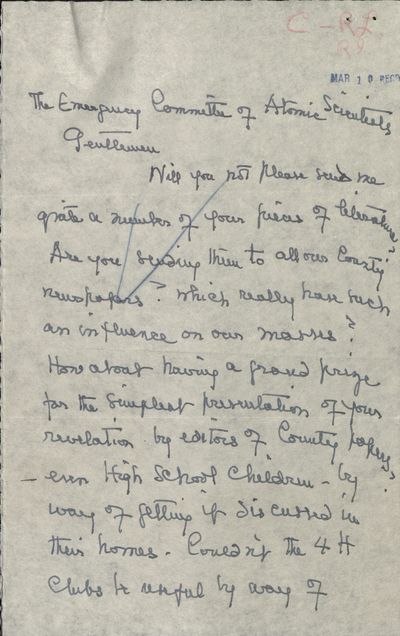 C - RL
MAR 10 REC'D
The Emergency Committee of Atomic Scientists
Gentlemen
Will you not please send me
quite a number of your pieces of literature?
Are you sending them to all our County
newspapers? which really have such
an influence on our masses?
How about having a grand prize
for the simplest presentation of your
revelation by editors of County papers,
- even High School Children - by
way of getting it discussed in
their homes. Couldn't the 4 H
Clubs be useful by way of